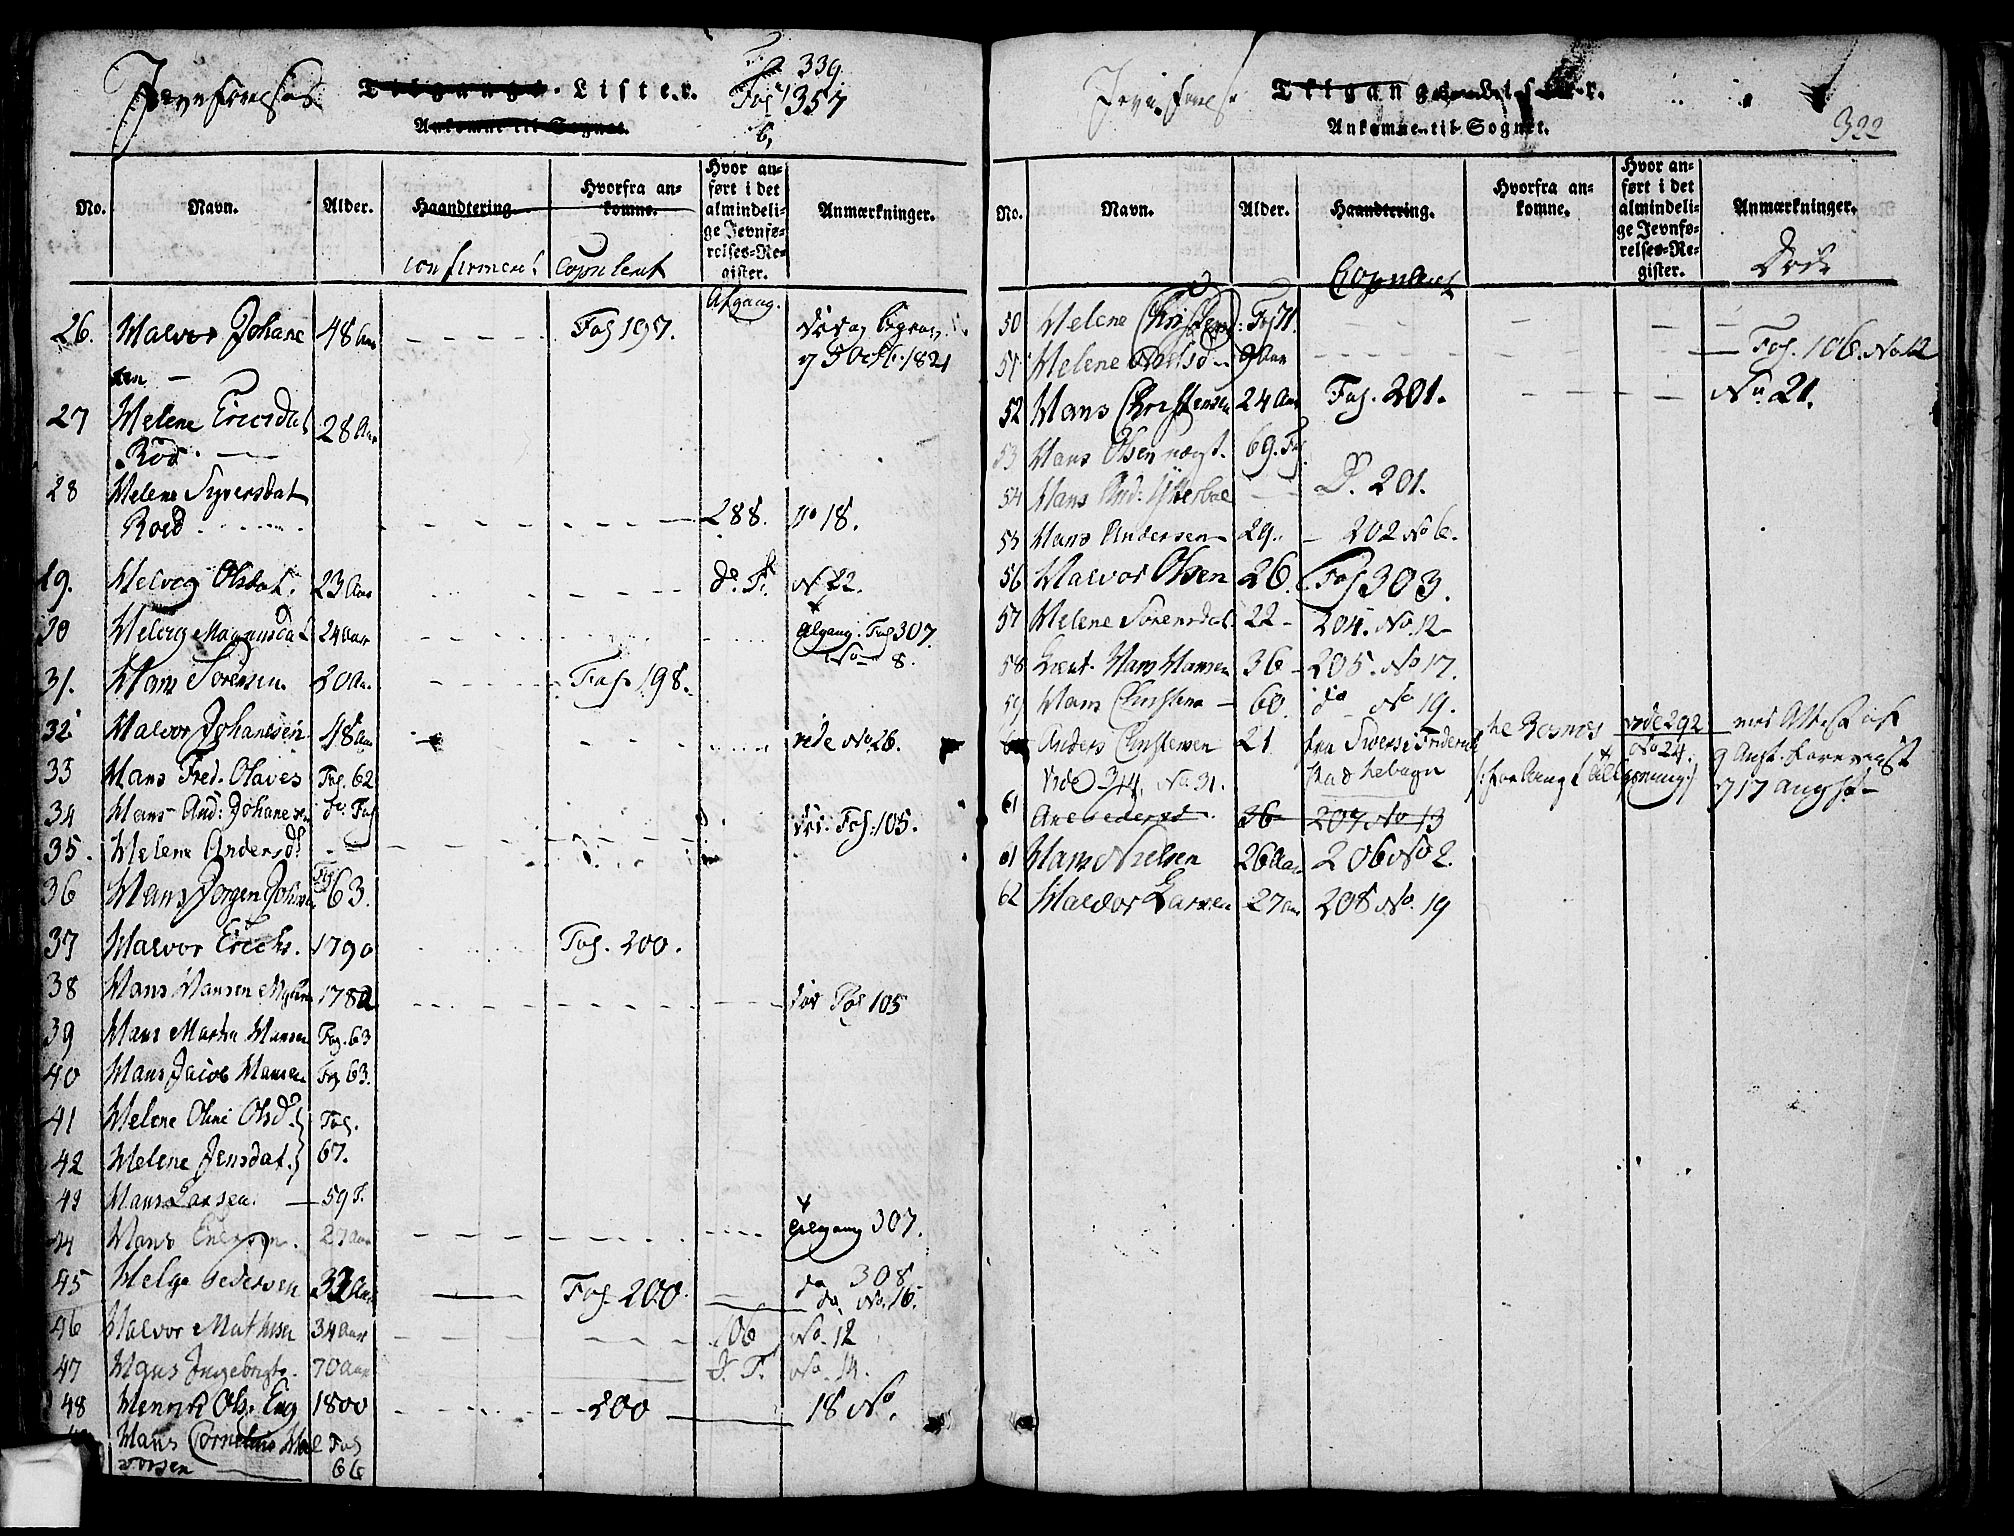 Jevnførelses Tilgangs-Lister. 339
Fol 357
Ankomne til Sognet. 6
No. Navn. Alder. Haandtering. Hvorfra ankomne. Hvor anført i det almindelige Jevnførelses-Register. Anmærkninger.
confirmeret Copuleret
Afgang.
26. Halvor Johane 48 Aar Fol 197. død og begrav.
sen 7 Octb. 1821
27 Helene Ericsdat 28 Aar
Röd
28 Helene Syversdat
Roed 288. No 18.
29. Helveg Olsdat. 23 Aar do. F. No 22.
30 Helveg Magnusdat 24 Aar afgang. Fol 307.
No 8.
31. Hans Sörensen. 20 Aar Fol. 198.
32 Halvor Johanesen 48 Aar vide No 26.
33 Hans Fred. Olaves Fol. 62
34 Hans And: Johanesen do. Fol
død. Fol. 105.
35. Helene Andersd
36 Hans Jörgen Johan Fol 63.
37 Halvor Erichs. 1790 Fol. 200.
38 Hans Hansen 178 død Fol 105
39 Hans Martin Hansen Fol. 63
40 Hans Jacob Hansen Fol 63.
41 Helene Oline Olsd. Fol.
42 Helene Jensdat. 67.
43 Hans Larsen. 59 F.
44 Hans 27 Aar afgang 307.
45 Helge Pedersen 32 Aar Fol. 200 do 308
do. No. 16.
46 Halvor Mathisen 34 Aar 106 No. 12
47 Hans Ingebrigts. 70 Aar d. F. No. 14.
48 Henrik Ols. Eng 1800 200 18 No.
Hans Cornelius Hal Fol
vorsen 66
Jevnførels Tilgangs-Lister.
Ankomne til Sognet. 322
No. Navn. Alder. Haandtering. Hvorfra ankomne. Hvor anført i det almindelige Jevnførelses-Register. Anmærkninger.
Copuleret Døde
50 Helene Christens: Fol 71.
51 Helene Nielsd 9 Aar Fol. 106. No 12
52 Hans Christensen 24 Aar Fol. 201. No. 21.
53 Hans Olsen 69. Fol.
54 Hans And: D. 201.
55 Hans Andersen 29. 202 No 6.
56 Halvor Olsen 26. Fol 303.
57 Helene Sörensdat. 22 204. No. 12
58 Lieut. Hans Hansen 36 205. No 17.
59 Hans Christens 60 do No 19.
Anders Christensen 21 fra vide 292 med Attest af
Vide 314. No. 31. No 24.
61 Ane Pedersd 36 207 No 13
61 Hans Nielsen 26 Aar 206 No 2.
62 Halvor Larsen 27 Aar 208 No. 19